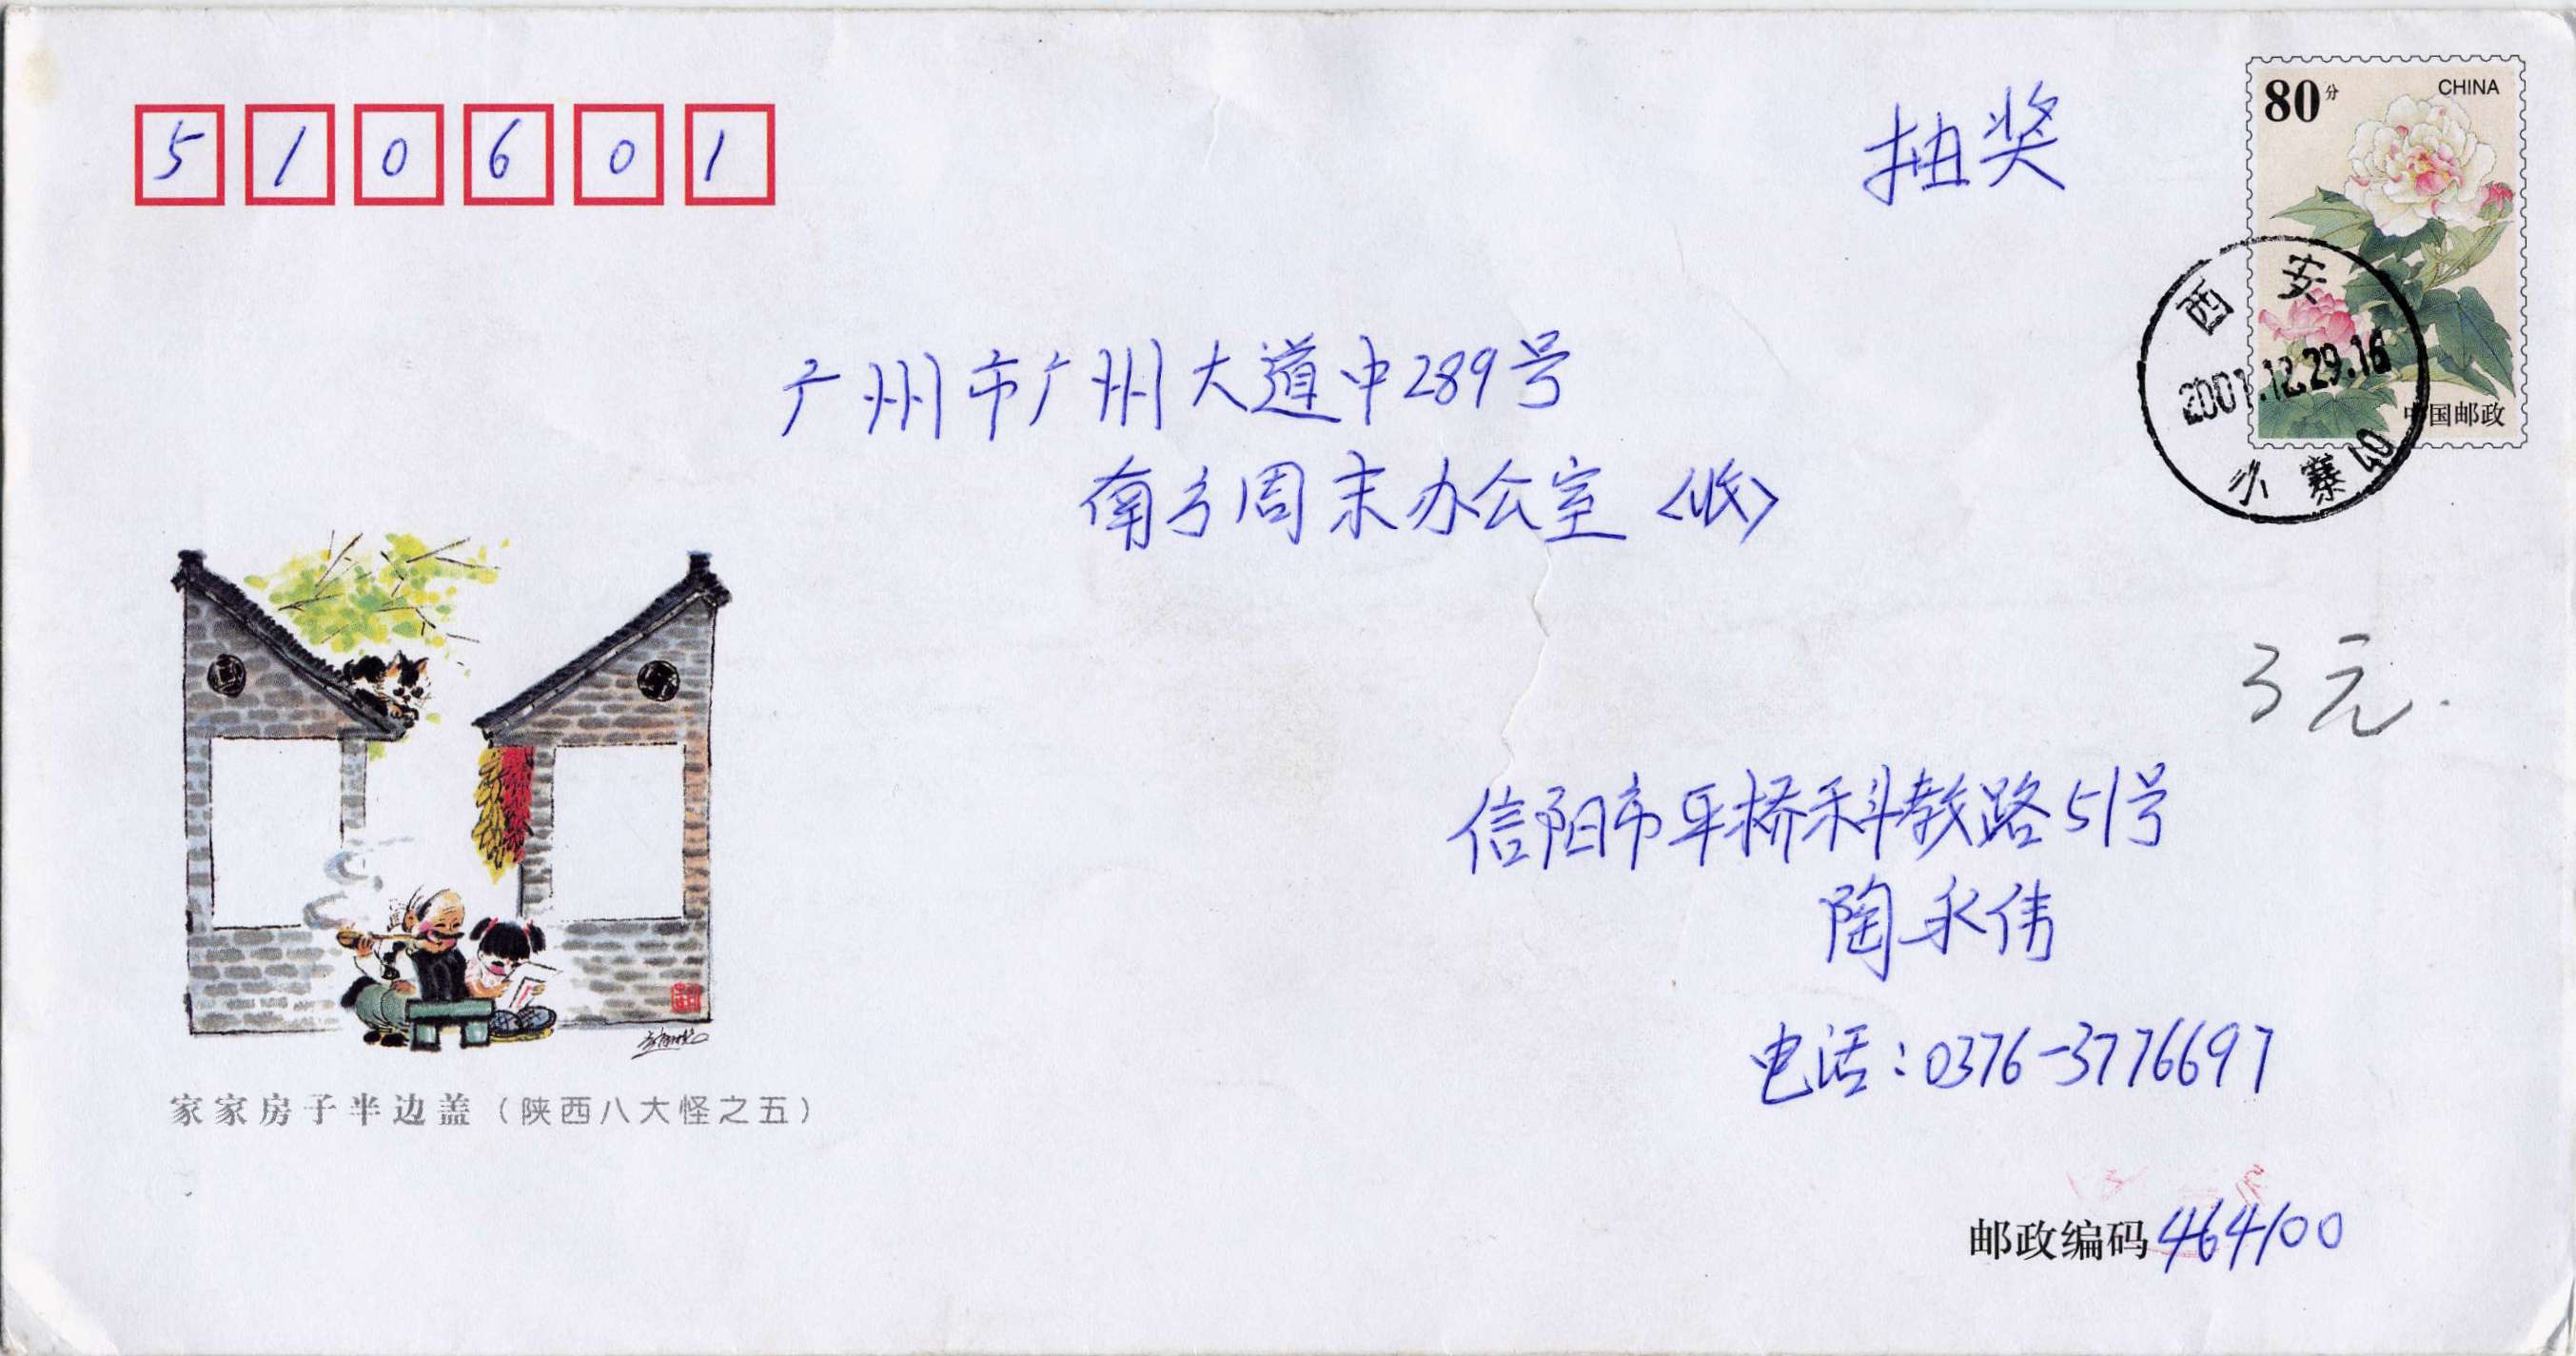 510601
抽奖
80分
CHINA
中国邮政
西安
2001.12.29.16
小寨40
广州市广州大道中289号
南方周末办公室<收>
3元.
信阳市平桥科教路51号
陶永伟
电话:0376-3776697
家家房子半边盖(陕西八大怪之五)
邮政编码464100